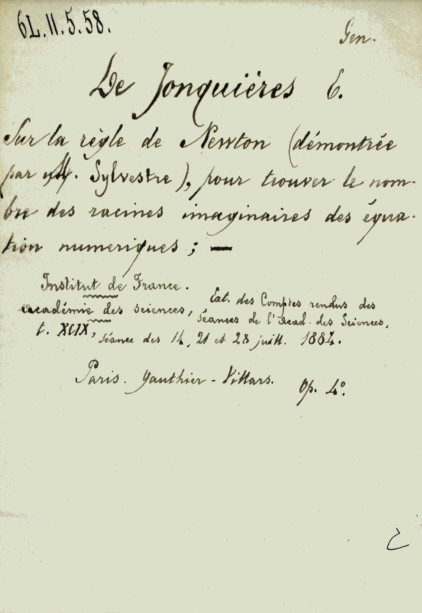 6L.11.5.58.
Gen.
De Jonquiéres E.
Sur la règle de Newton (démontrée
par M. Sylvestre), pour trouver le nom-
bre des racines imaginaires des équa-
tion numeriques; —
Institut de France.
académie des sciences, Ext. des Comptes rendus des
Séances de l'Acad. des Sciences,
t. XCIX, séance des 14, 21 et 28 juill. 1884.
Paris. Gauthier-Villars. Op. 4°.